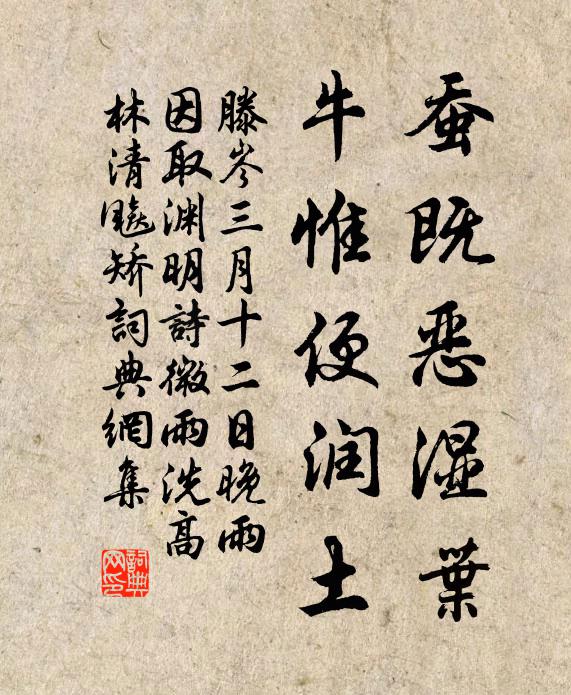 蚕既恶湿葉
牛惟便润土
滕岑三月十二日晚雨
因取渊明詩微雨洗高
林清飈矫詞典網集
詞典
网印